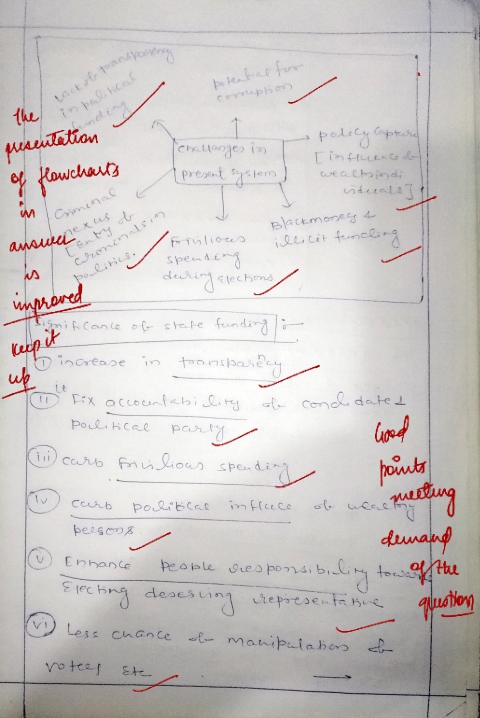 Lack of transparency
in political
funding
potential for
corruption
challenges in
present system
policy capture
[influence of
wealthy indi
viduals]
criminal
nexus
[Entry of
criminals in
politics.
Frivilious
spending
during elections
Blackmoney &
illicit funding
The
presentation
of flowcharts
in
answer
is
improved
keep it
up
Significance of state funding :-
(i) increase in transparency
(ii) It Fix accountability of candidate &
political party
(iii) carb frivilious spending
(iv) carb political influce of wealthy
persons
(v) Enhance people responsibility toward
Electing deserving representative
(vi) Less chance of manipulation of
votes etc
Good
points
meeting
demand
of the
question